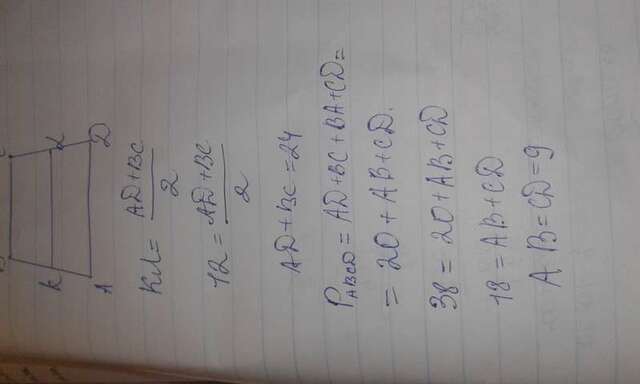 B C
K L
A D
КЛ = AD+BC / 2
12 = AD+BC / 2
AD+BC = 24
P_ABCD = AD+BC+BA+CD =
= 20+AB+CD.
38 = 20+AB+CD
18 = AB+CD
AB=CD=9